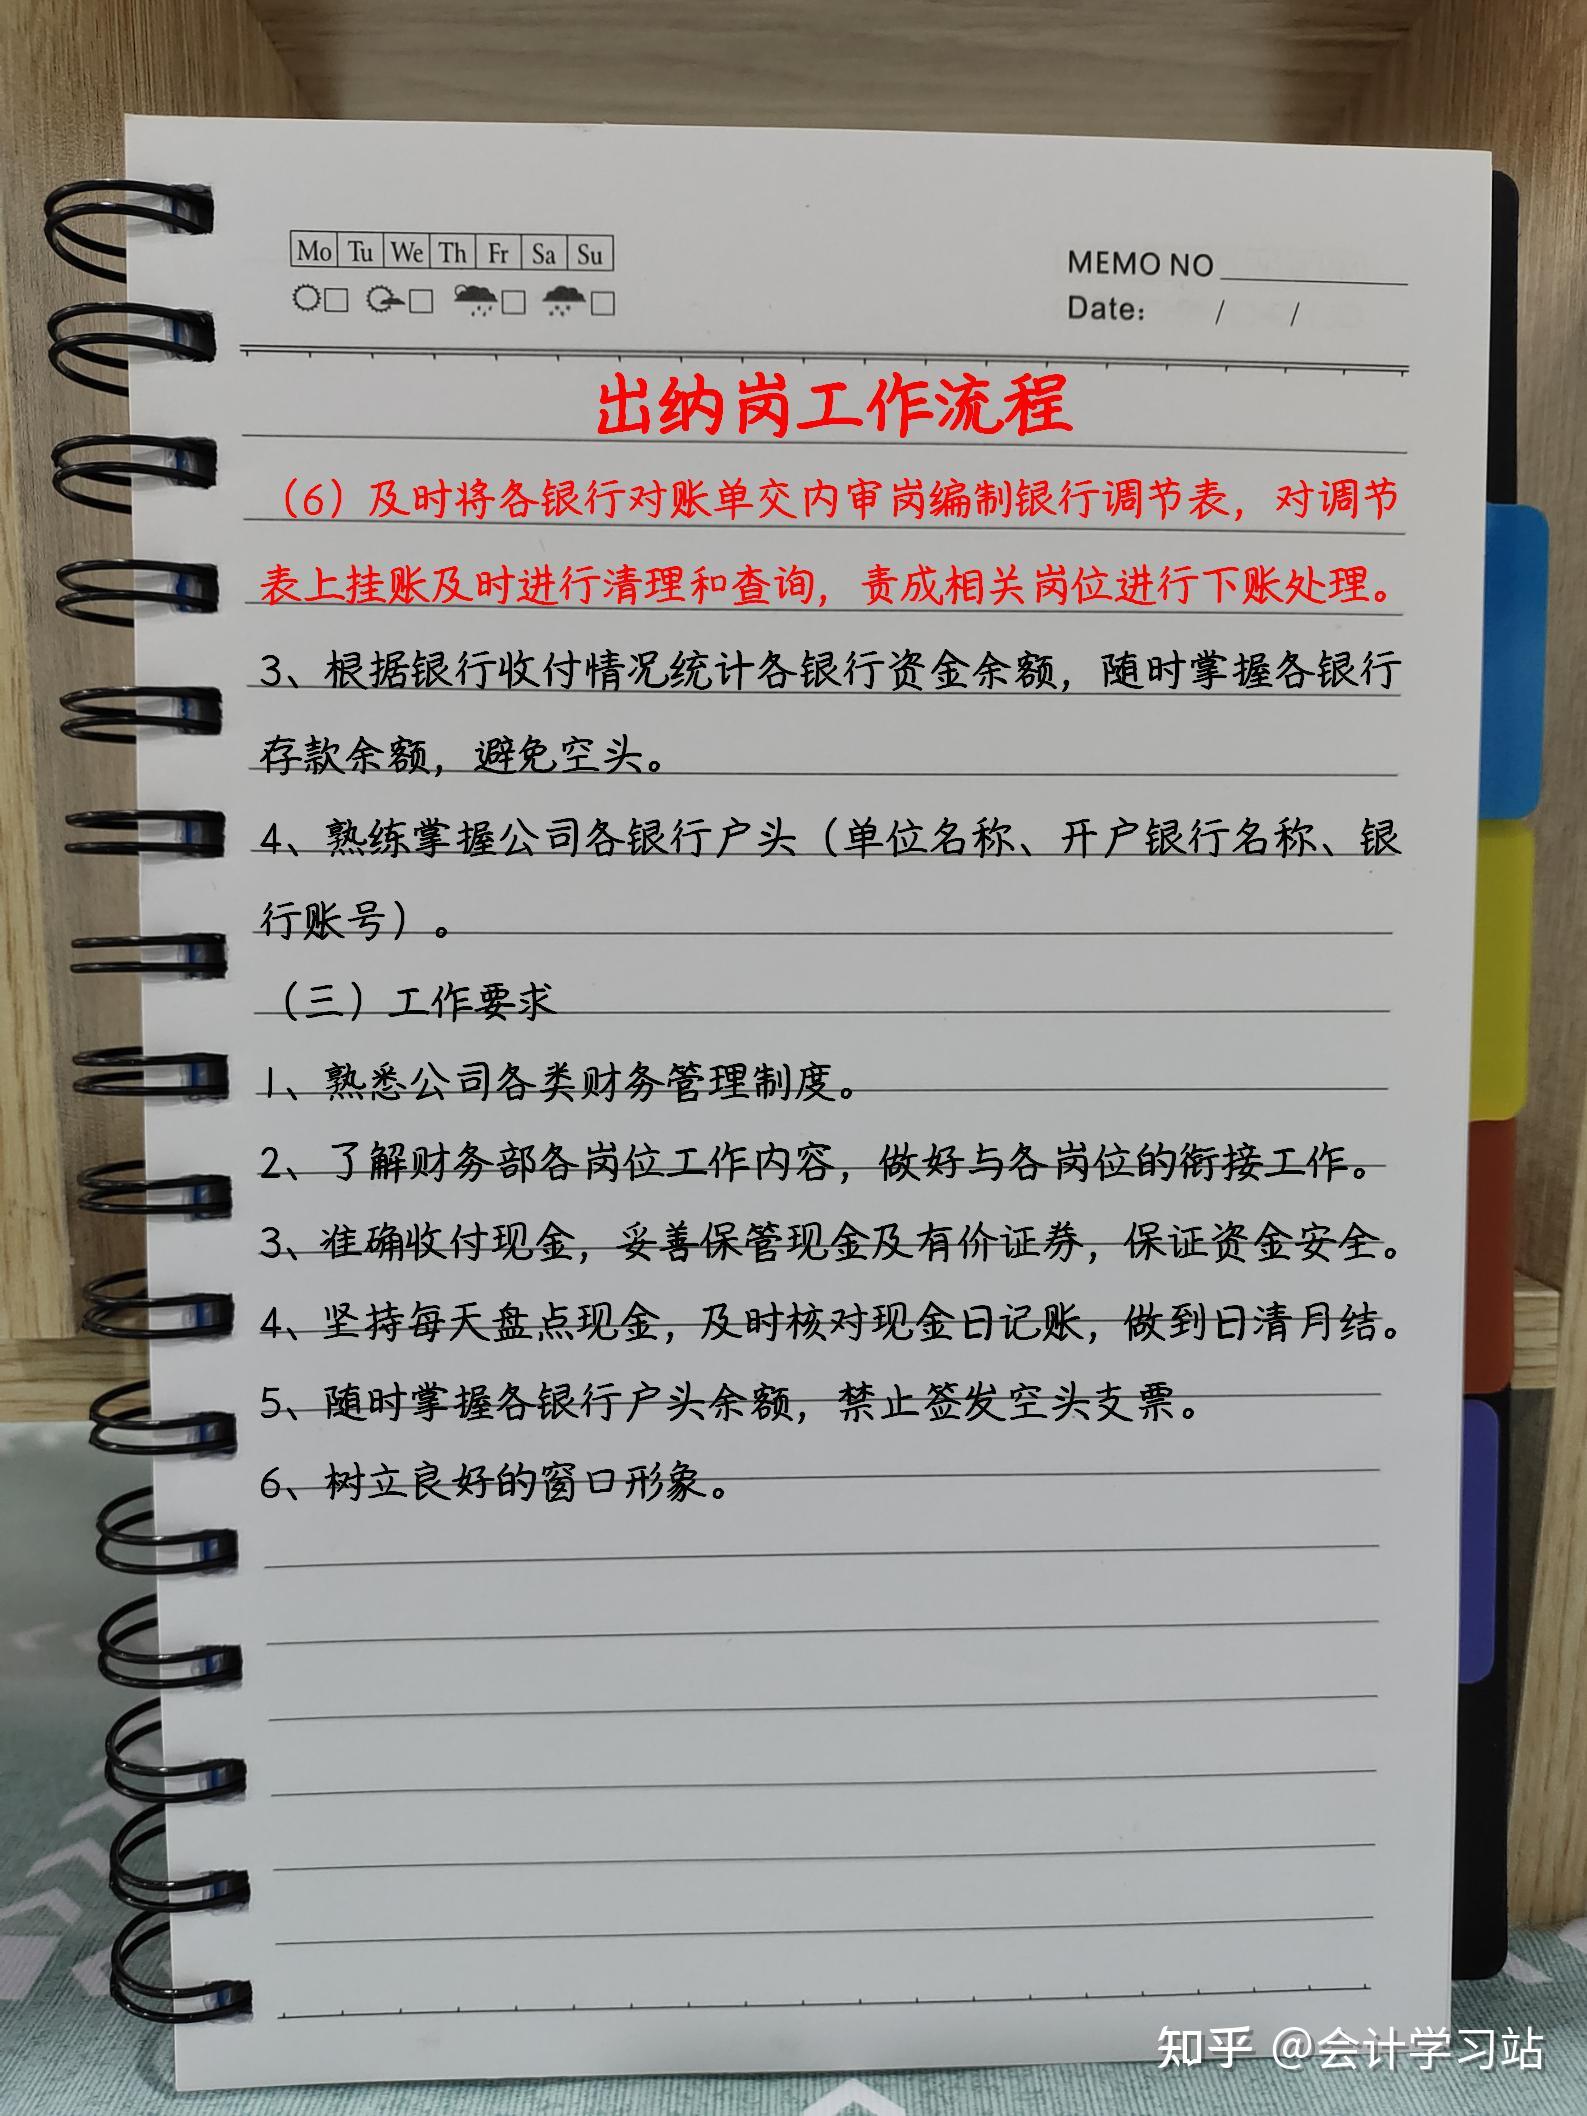 Mo Tu We Th Fr Sa Su
MEMO NO
Date: / /
出纳岗工作流程
（6）及时将各银行对账单交内审岗编制银行调节表，对调节
表上挂账及时进行清理和查询，责成相关岗位进行下账处理。
3、根据银行收付情况统计各银行资金余额，随时掌握各银行
存款余额，避免空头。
4、熟练掌握公司各银行户头（单位名称、开户银行名称、银
行账号）。
（三）工作要求
1、熟悉公司各类财务管理制度。
2、了解财务部各岗位工作内容，做好与各岗位的衔接工作。
3、准确收付现金，妥善保管现金及有价证券，保证资金安全。
4、坚持每天盘点现金，及时核对现金日记账，做到日清月结。
5、随时掌握各银行户头余额，禁止签发空头支票。
6、树立良好的窗口形象。
知乎 @会计学习站